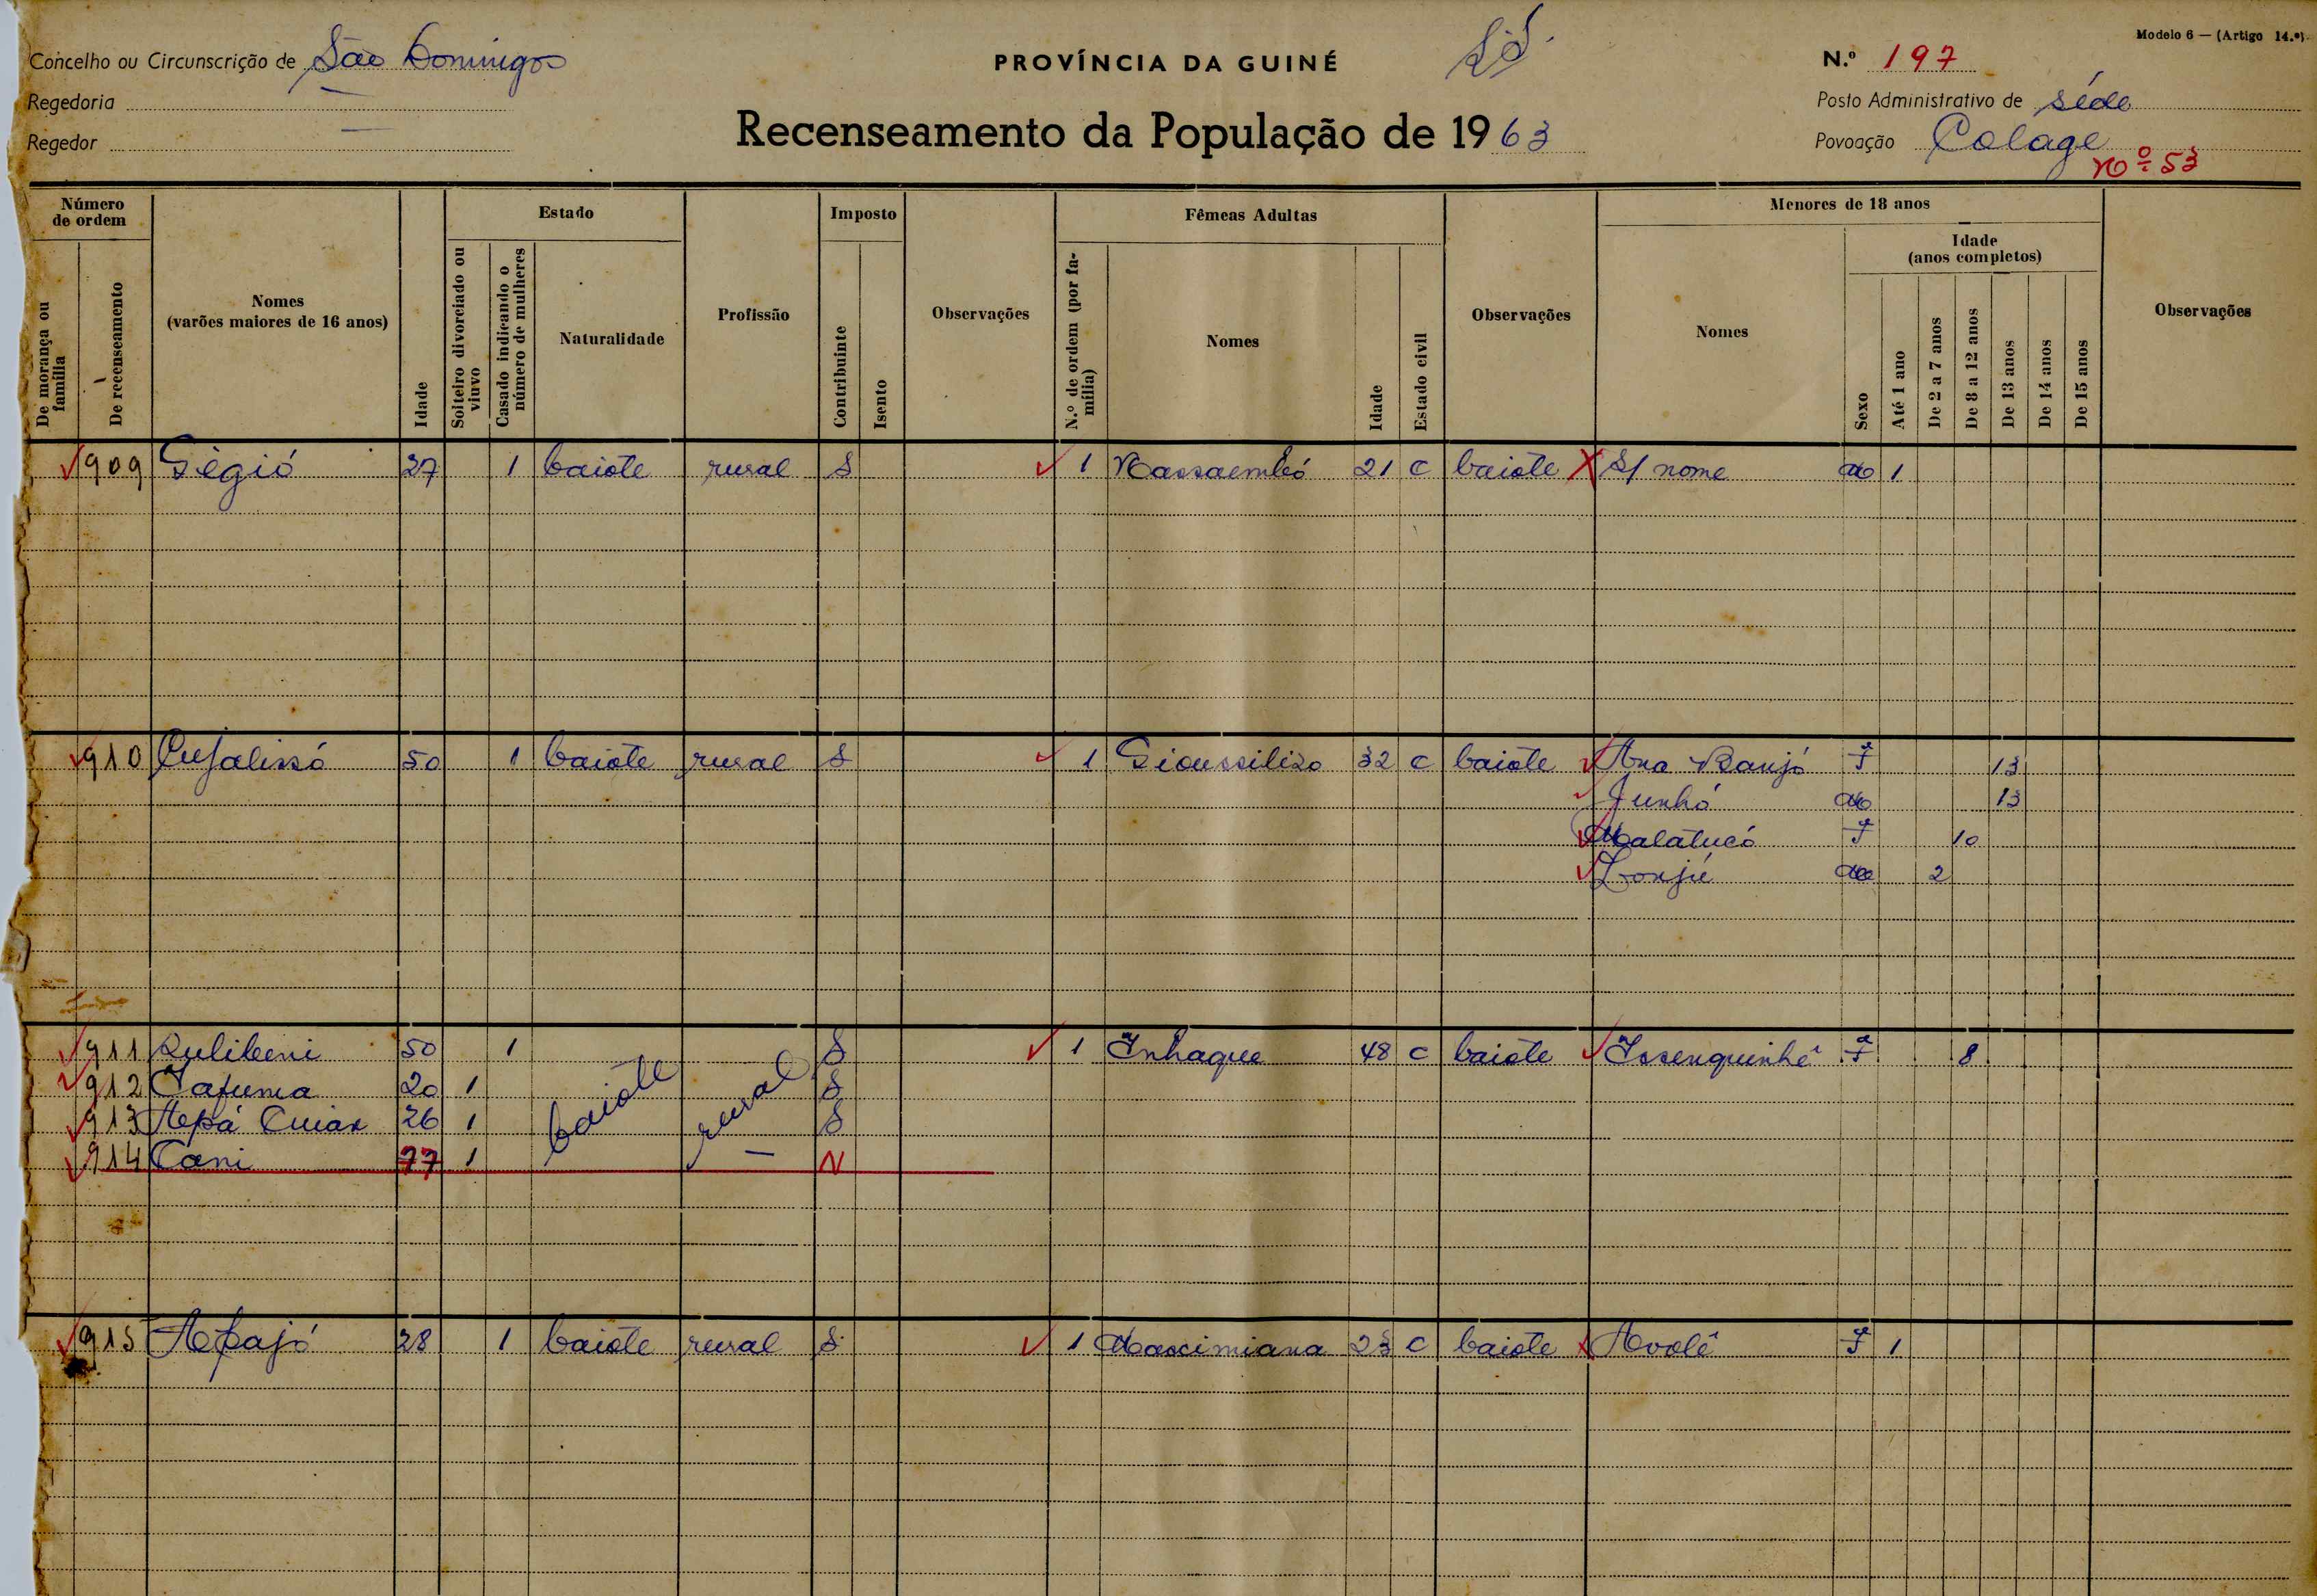 Modelo 6 — (Artigo 14.º)
Concelho ou Circunscrição de São Domingos
PROVÍNCIA DA GUINÉ
N.º 197
Regedoria —
Posto Administrativo de Séde
Regedor —
Recenseamento da População de 1963
Povoação Colage
Nº 53
Número de ordem
Estado
Imposto
Fêmeas Adultas
Menores de 18 anos
De morança ou família
De recenseamento
Nomes (varões maiores de 16 anos)
Idade
Solteiro divorciado ou viuvo
Casado indicando o número de mulheres
Naturalidade
Profissão
Contribuinte
Isento
Observações
N.º de ordem (por família)
Nomes
Idade
Estado civil
Observações
Nomes
Sexo
Idade (anos completos)
Até 1 ano
De 2 a 7 anos
De 8 a 12 anos
De 13 anos
De 14 anos
De 15 anos
Observações
909 Gégió 27 1 baiote rural S 1 Nassaembó 21 c baiote S/ nome M 1
910 50 1 baiote rural S 1 32 c baiote Ana Banjó F 13
Junhó M 13
Malatucó F 10
Lonjú M 2
911 Sulibeni 50 1 baiote rural S 1 Inhaque 48 c baiote Issenquinhê F 8
912 Tafuma 20 1 S
913 Apá Cuiar 26 1 S
914 Cani 77 1 — N
915 Apajó 28 1 baiote rural S 1 Maximiana 23 c baiote Avolê F 1